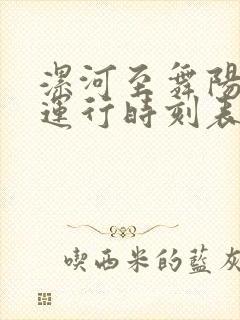 漯河至舞陽
運行時刻表
喫西米的藍灰